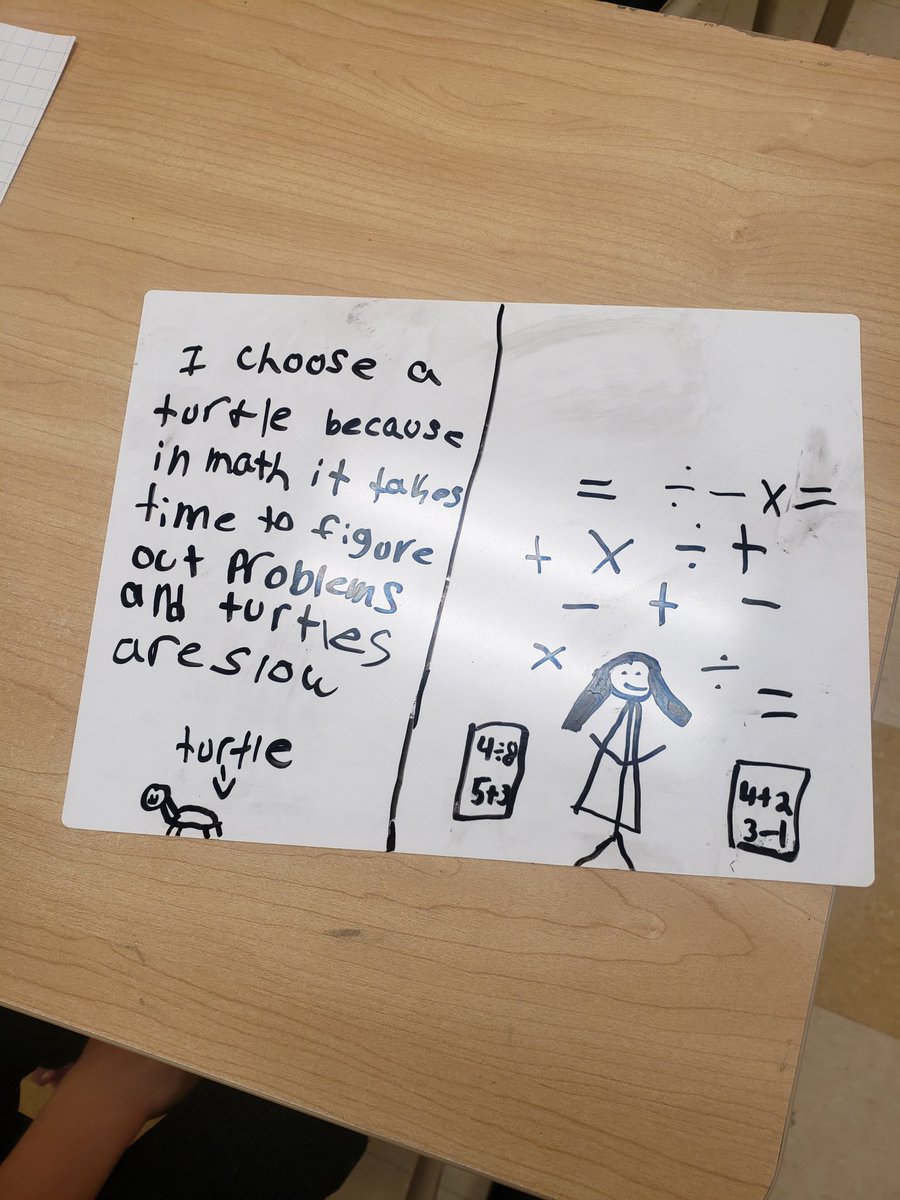 I choose a
turtle because
in math it takes
time to figure
out problems
and turtles
are slow
turtle
= ÷ − x =
+ x ÷ +
− + −
x ÷ =
4÷8
5+3
4+2
3−1